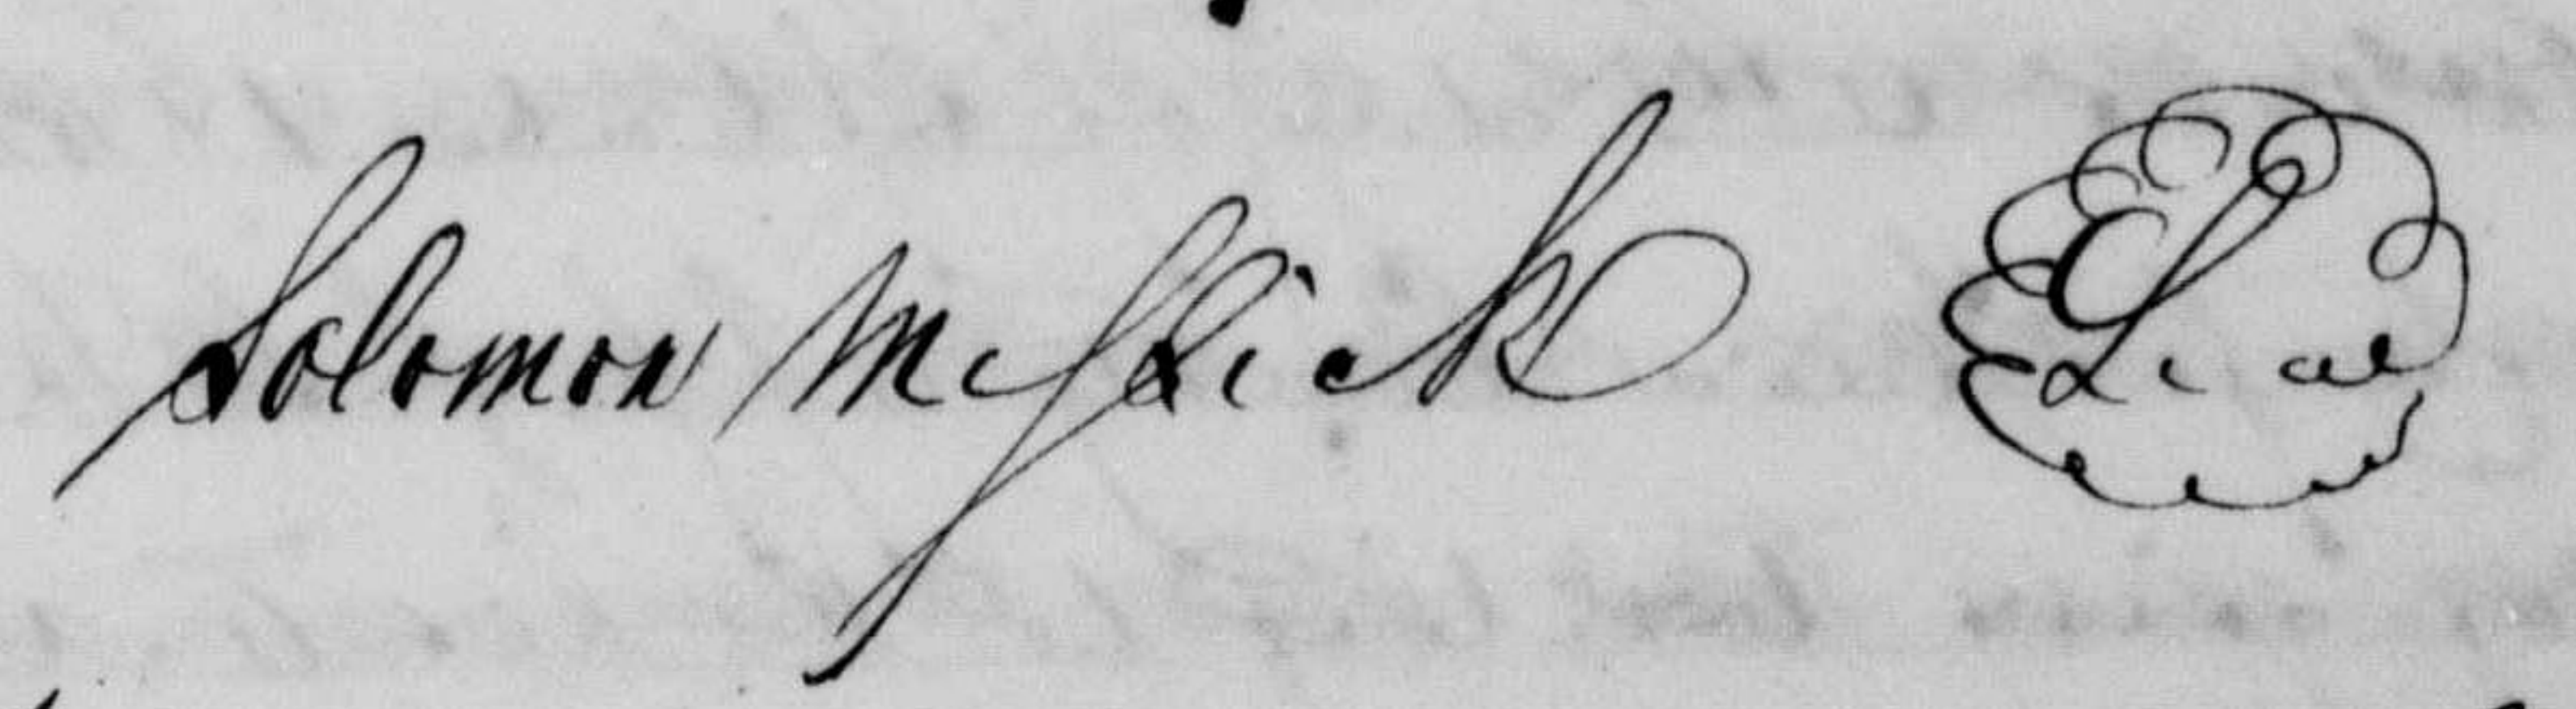 Solomon Messick Seal